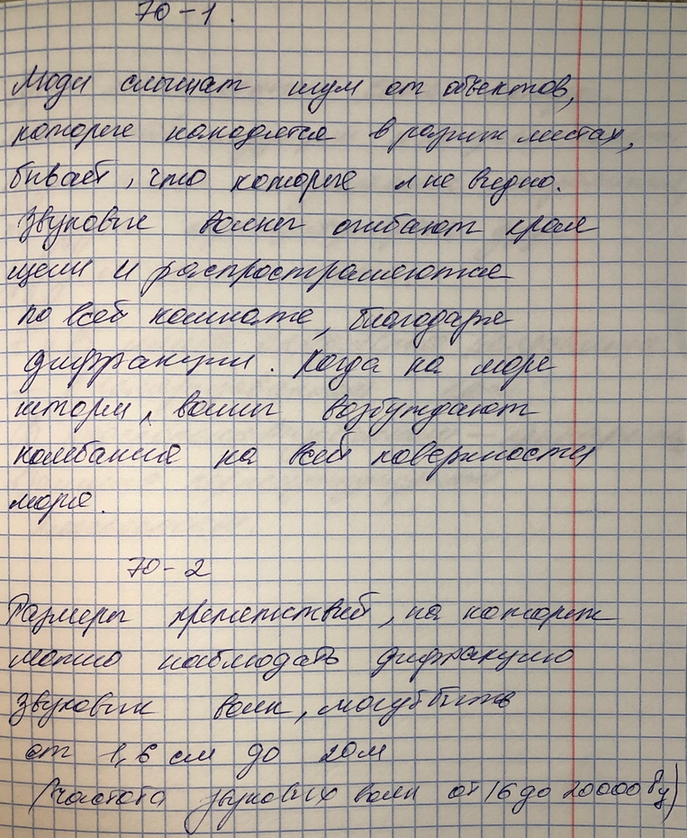 70-1.
Люди слышат шум от объектов,
которые находятся в разных местах,
бывает, что которые и не видно.
Звуковые волны огибают края
щели и распространяются
по всей комнате, благодаря
дифракции. Когда на море
шторм, волны возбуждают
колебания на всей поверхности
моря.
70-2
Размеры препятствий, на которых
можно наблюдать дифракцию
звуковых волн, могут быть
от 1,6 см до 20 м
(частота звуковых волн от 16 до 20000 Гц)